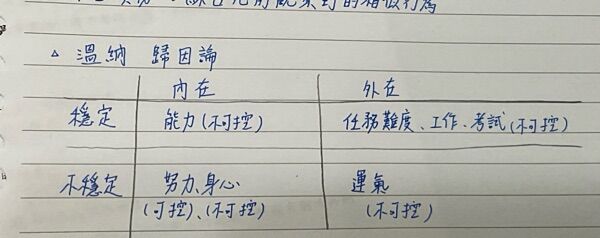 △ 溫納 歸因論
內在 外在
穩定 能力(不可控) 任務難度、工作、考試(不可控)
不穩定 努力、身心 運氣
(可控)、(不可控) (不可控)